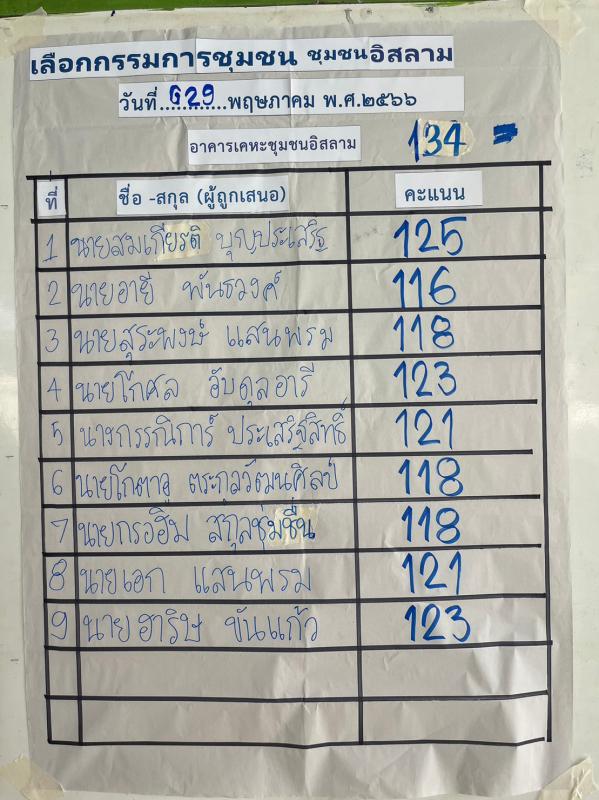 เลือกกรรมการชุมชน ชุมชนอิสลาม
วันที่....29....พฤษภาคม พ.ศ.๒๕๖๖
อาคารเคหะชุมชนอิสลาม 134
ที่ ชื่อ -สกุล (ผู้ถูกเสนอ) คะแนน
1 นายสมเกียรติ บุญประเสริฐ 125
2 นายอายี พันธวงค์ 116
3 นายสุระพงษ์ แสนพรม 118
4 นายโกศล อับดุลอารี 123
5 นางกรรณิการ์ ประเสริฐสิทธิ์ 121
6 ตระกูลวัฒนศิลป์ 118
7 สกุลชุ่มชื่น 118
8 นายเอก แสนพรม 121
9 นายฮาริษ ขันแก้ว 123